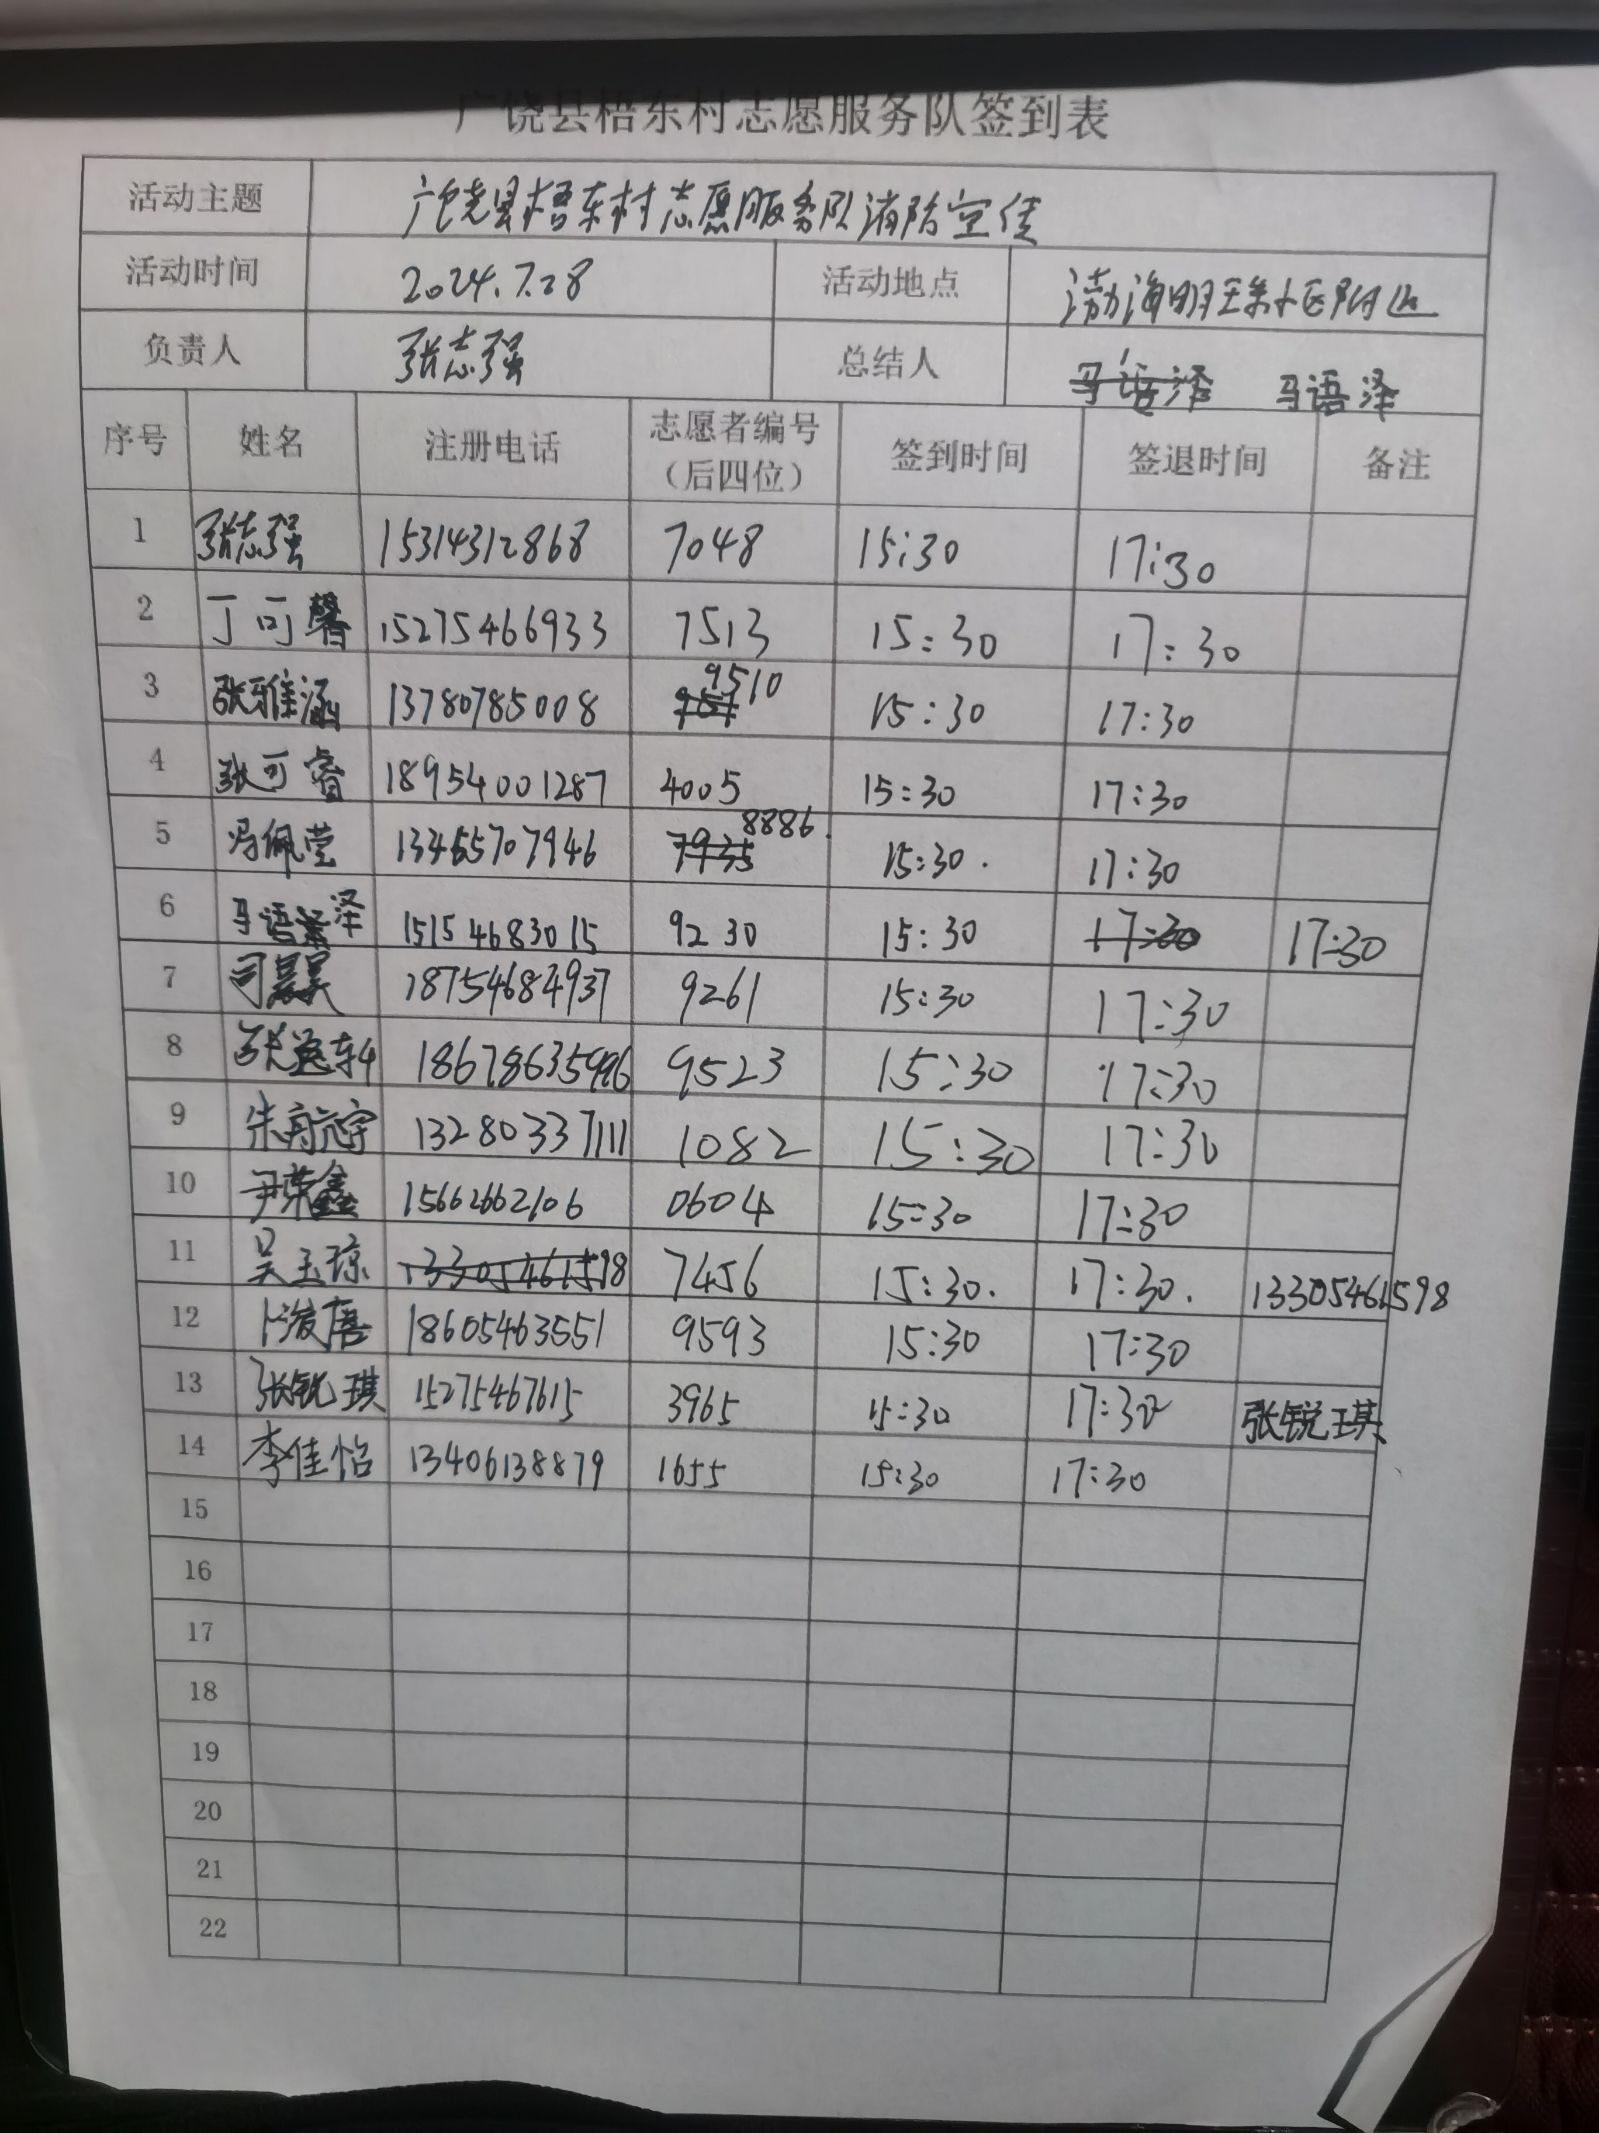 广饶县梧东村志愿服务队签到表
活动主题 广饶县梧东村志愿服务队消防宣传
活动时间 2024.7.28 活动地点 渤海明珠小区附近
负责人 张志强 总结人 马语泽
序号 姓名 注册电话 志愿者编号（后四位） 签到时间 签退时间 备注
1 张志强 15314312868 7048 15:30 17:30
2 丁可馨 15275466933 7513 15:30 17:30
3 张雅涵 13780785008 9510 15:30 17:30
4 张可睿 18954001287 4005 15:30 17:30
5 冯佩莹 13465707946 8886 15:30. 17:30
6 马语泽 15154683015 9230 15:30 17:30 17:30
7 司昊 18754684937 9261 15:30 17:30
8 张 9523 15:30 17:30
9 朱航宇 13280337111 1082 15:30 17:30
10 尹荣鑫 15662662106 0604 15:30 17:30
11 吴玉琼 13305461598 7456 15:30. 17:30. 13305461598
12 卜浚 18605463551 9593 15:30 17:30
13 张锐琪 15275467615 3965 15:30 17:30 张锐琪
14 李佳怡 13406138879 1655 15:30 17:30
15
16
17
18
19
20
21
22